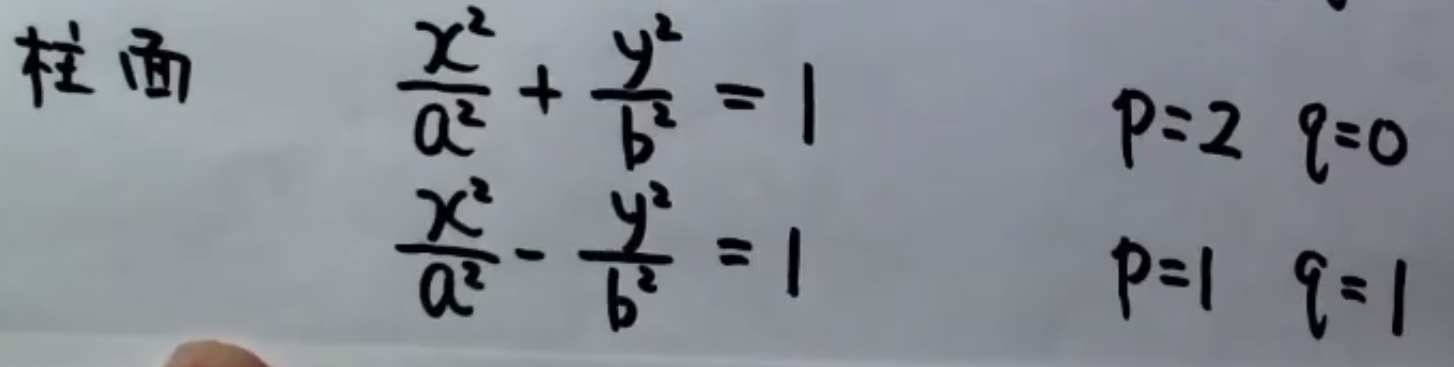 柱面 x²/a² + y²/b² = 1 p=2 q=0
x²/a² - y²/b² = 1 p=1 q=1